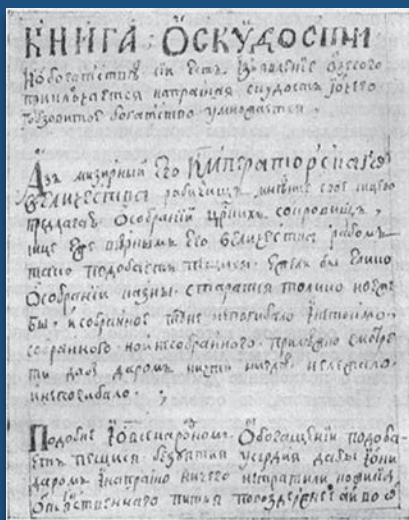 КНИГА О СКУДОСТИ
И о богатстве сие есть изъявление от чего
приключается напрасная скудость и от чего
гобзовитое богатство умножается.
Азъ мизирный Его Императорскаго
величества рабичищъ мнение свое сицево
предлагаю о собрании црскихъ сокровищъ,
еже вѣрнымъ Его величества рабомъ
тако подобаетъ пещися. Ежели бы елико
о собрании казны старатися толико
бы. и собранное туне не погибало и не токмо
собранного но и не собранного. прилежно смотре
ти дабы даромъ ничто нигдѣ. не лежало.
и не гибало.
Подобне и о всенародномъ обогащении подоба
етъ пещися без уятия усердия дабы и они
даромъ и напрасно ничего не тратили но жили б
от пьянственнаго питья повоздержнее а и во о